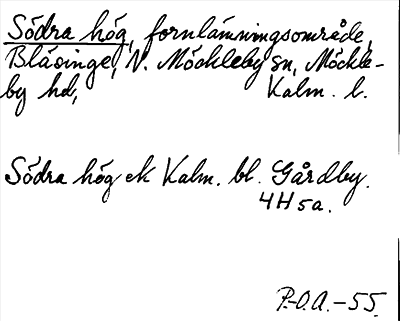 Södra hög, fornlämningsområde,
Bläsinge, N. Möckleby sn, Möckle-
by hd, Kalm. l.
Södra hög ek Kalm. bl. Gårdby.
4H5a.
P.-O.A.-55.